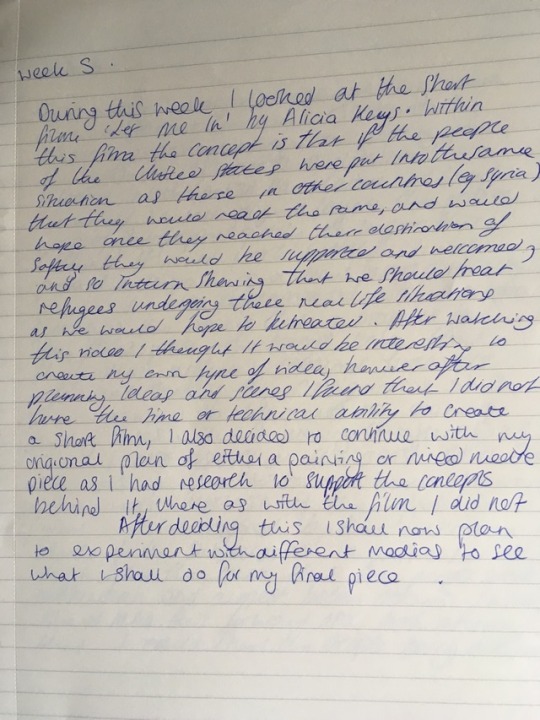 week 5.
During this week I looked at the short
film 'Let me In' by Alicia Keys. Within
this film the concept is that if the people
of the United States were put into the same
situation as those in other countries (eg Syria)
that they would react the same, and would
hope once they reached their destination of
safety they would be supported and welcomed,
and so inturn showing that we should treat
refugees undergoing these real life situations
as we would hope to be treated. After watching
this video I thought it would be interesting to
create my own type of video, however after
planning ideas and scenes I found that I did not
have the time or technical ability to create
a short film, I also decided to continue with my
origional plan of either a painting or mixed media
piece as I had research to support the concepts
behind it, where as with the film I did not
After deciding this I shall now plan
to experiment with different medias to see
what I shall do for my final piece .